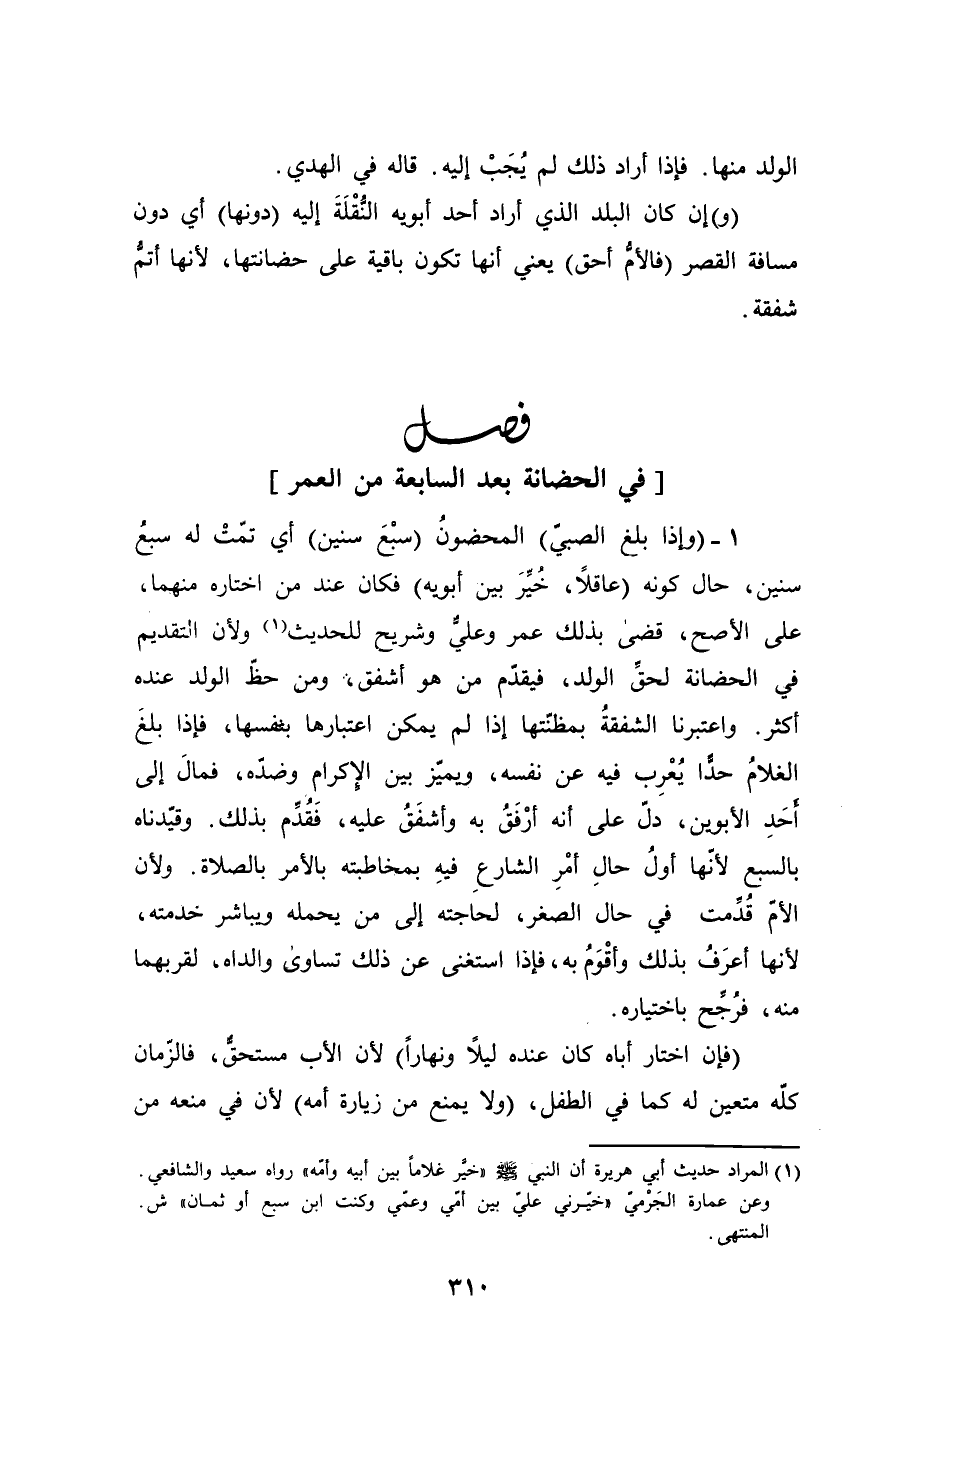 الولد منها. فإذا أراد ذلك لم يُجَبْ إليه. قاله في الهدي.
(و)إن كان البلد الذي أراد أحد أبويه النُّقْلَةَ إليه (دونها) أي دون
مسافة القصر (فالأمُّ أحق) يعني أنها تكون باقية على حضانتها، لأنها أتمُّ
شفقة.
فصل
[ في الحضانة بعد السابعة من العمر ]
١ - (وإذا بلغ الصبيّ) المحضونُ (سبْعَ سنين) أي تمّتْ له سبعُ
سنين، حال كونه (عاقلاً، خُيِّرَ بين أبويه) فكان عند من اختاره منهما،
على الأصح، قضىٰ بذلك عمر وعليٌّ وشريح للحديث(١) ولأن التقديم
في الحضانة لحقِّ الولد، فيقدّم من هو أشفق، ومن حظّ الولد عنده
أكثر. واعتبرنا الشفقةُ بمظنّتها إذا لم يمكن اعتبارها بنفسها، فإذا بلغَ
الغلامُ حدًّا يُعْرِب فيه عن نفسه، ويميّز بين الإكرام وضدّه، فمالَ إلى
أَحَدِ الأبوين، دلّ على أنه أرْفَقُ به وأشفَقُ عليه، فَقُدِّم بذلك. وقيّدناه
بالسبع لأنّها أولُ حالِ أمْرِ الشارعِ فيهِ بمخاطبته بالأمر بالصلاة. ولأن
الأمّ قُدِّمت في حال الصغر، لحاجته إلى من يحمله ويباشر خدمته،
لأنها أعرَفُ بذلك وأقْوَمُ به، فإذا استغنى عن ذلك تساوىٰ والداه، لقربهما
منه، فرُجِّح باختياره.
(فإن اختار أباه كان عنده ليلًا ونهاراً) لأن الأب مستحقٌّ، فالزّمان
كلّه متعين له كما في الطفل، (ولا يمنع من زيارة أمه) لأن في منعه من
(١) المراد حديث أبي هريرة أن النبي ﷺ «خيَّر غلاماً بين أبيه وأمّه» رواه سعيد والشافعي.
وعن عمارة الجَرْميّ «خيّرني عليّ بين أمّي وعمّي وكنت ابن سبع أو ثمان» ش.
المنتهى.
٣١٠